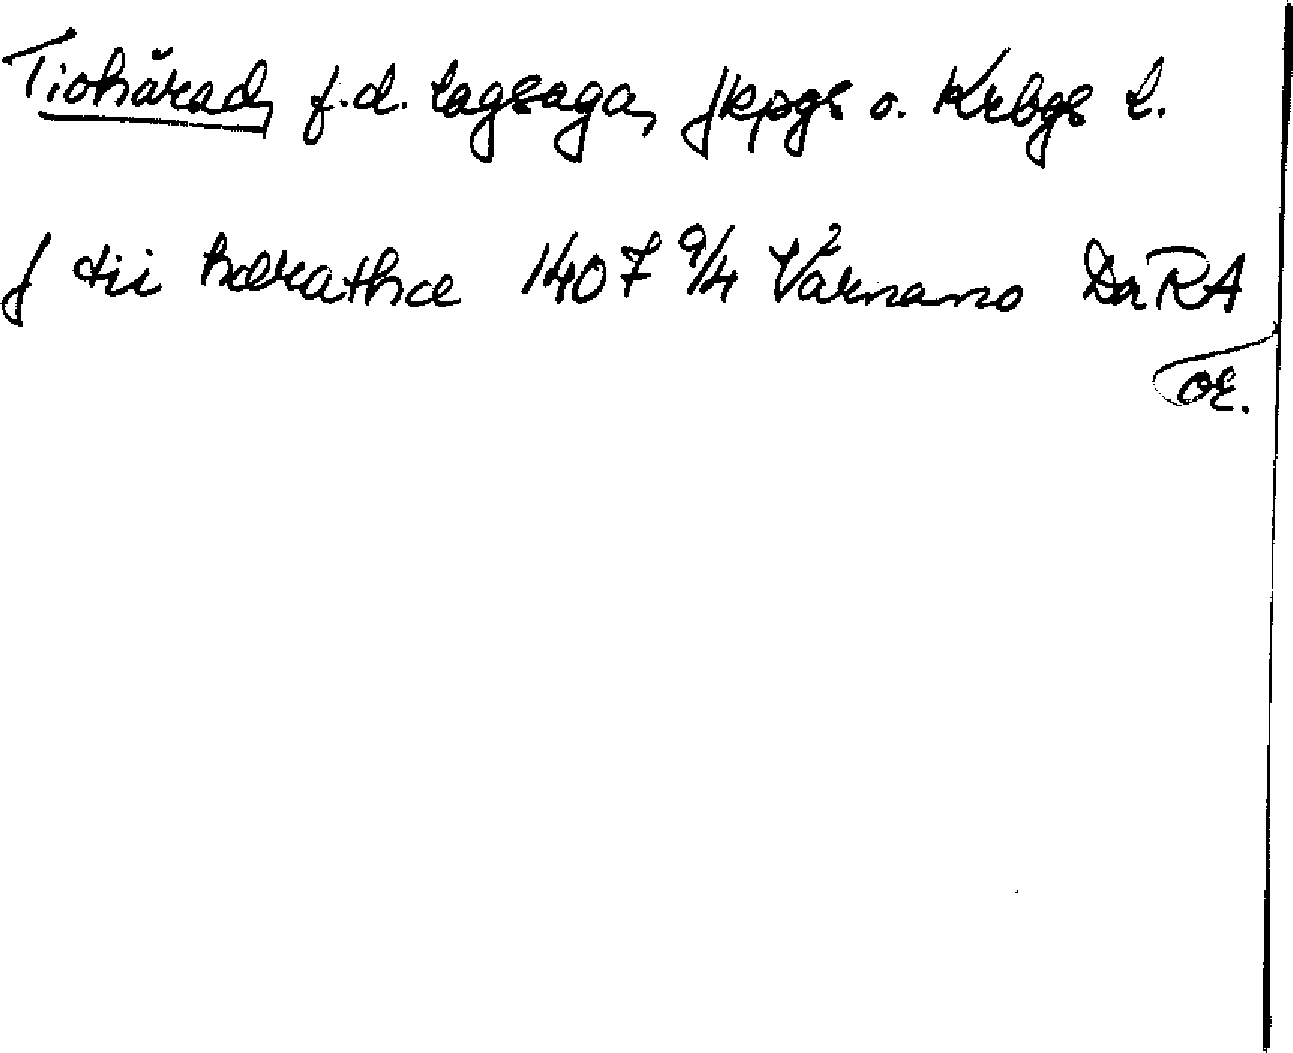 Tiohärad, f.d. lagsaga, Jkpgs o. Krbgs l.
J tii hærathæ 1407 9/4 Värnamo Da RA
or.